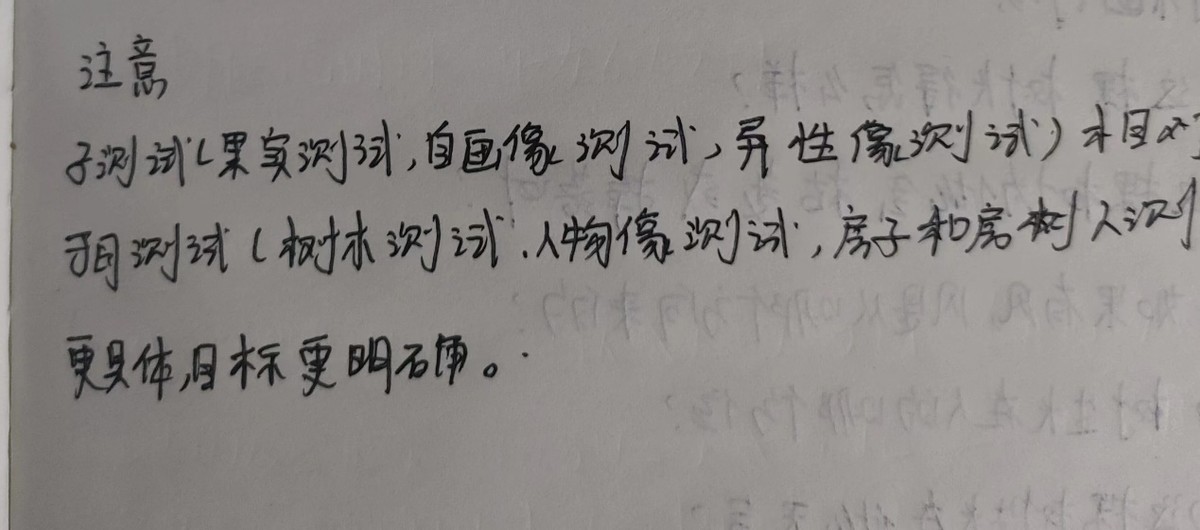 注意
子测试(果实测试,自画像测试,异性像测试)相对
于母测试(树木测试、人物像测试,房子和房树人测
更具体,目标更明确。